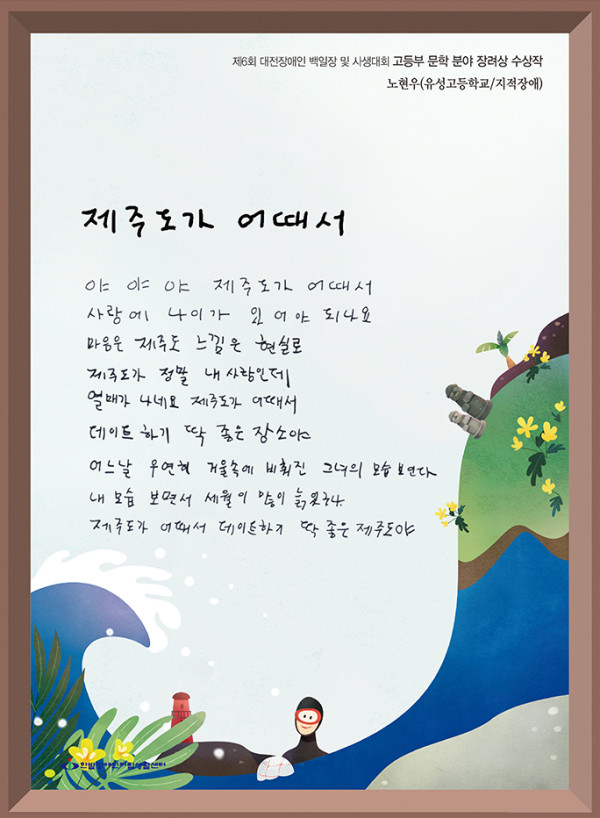 제6회 대전장애인 백일장 및 사생대회 고등부 문학 분야 장려상 수상작
노현우(유성고등학교/지적장애)
제주도가 어때서
야 야 야 제주도가 어때서
사랑에 나이가 있어야 되나요
마음은 제주도 느낌은 현실로
제주도가 정말 내 사랑인데
열매가 나네요 제주도가 어때서
데이트 하기 딱 좋은 장소야
어느날 우연혜 거울속에 비춰진 그녀의 모습 보면다
내 모습 보면서 세월이 많이 늙었구나.
제주도가 어때서 데이트하기 딱 좋은 제주도야